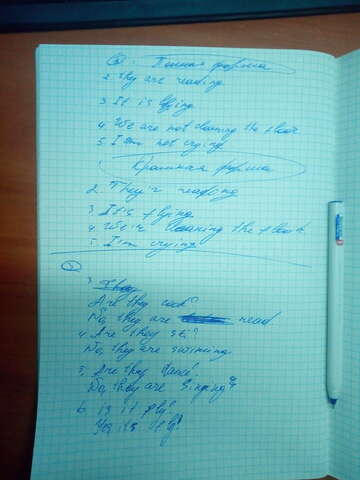 Полная форма
2. They are reading.
3. It is flying
4. We are not cleaning the floor
5. I'm not crying.
Краткая форма
2. They'r reading
3. It's flying.
4. We'r cleaning the floor.
5. I'm crying.
5.
3. They
Are they cook?
No, they are read
4. Are they
No, they are swimming.
5. Are they dance?
No, they are singing
6. is it fly?
Yes it is fly!